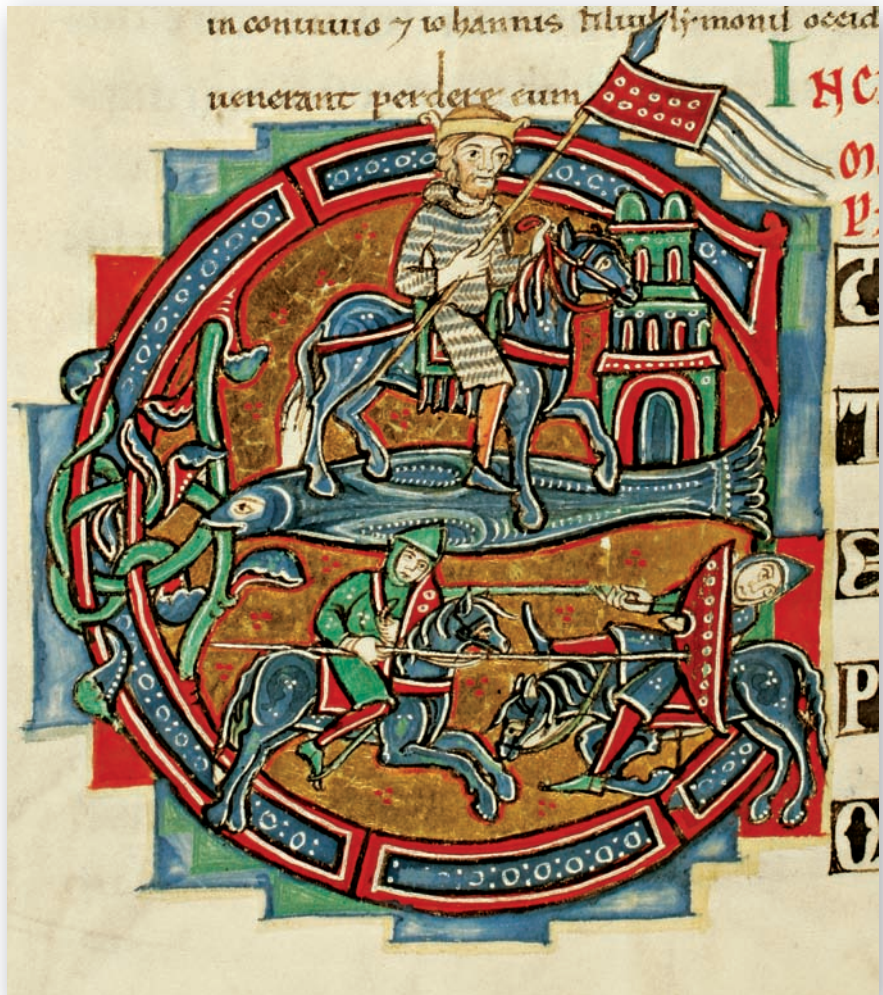 in conuiuio ⁊ iohannis filius symonis occid
uenerant perdere eum
INC
M
P
E
E
T
E
P
O